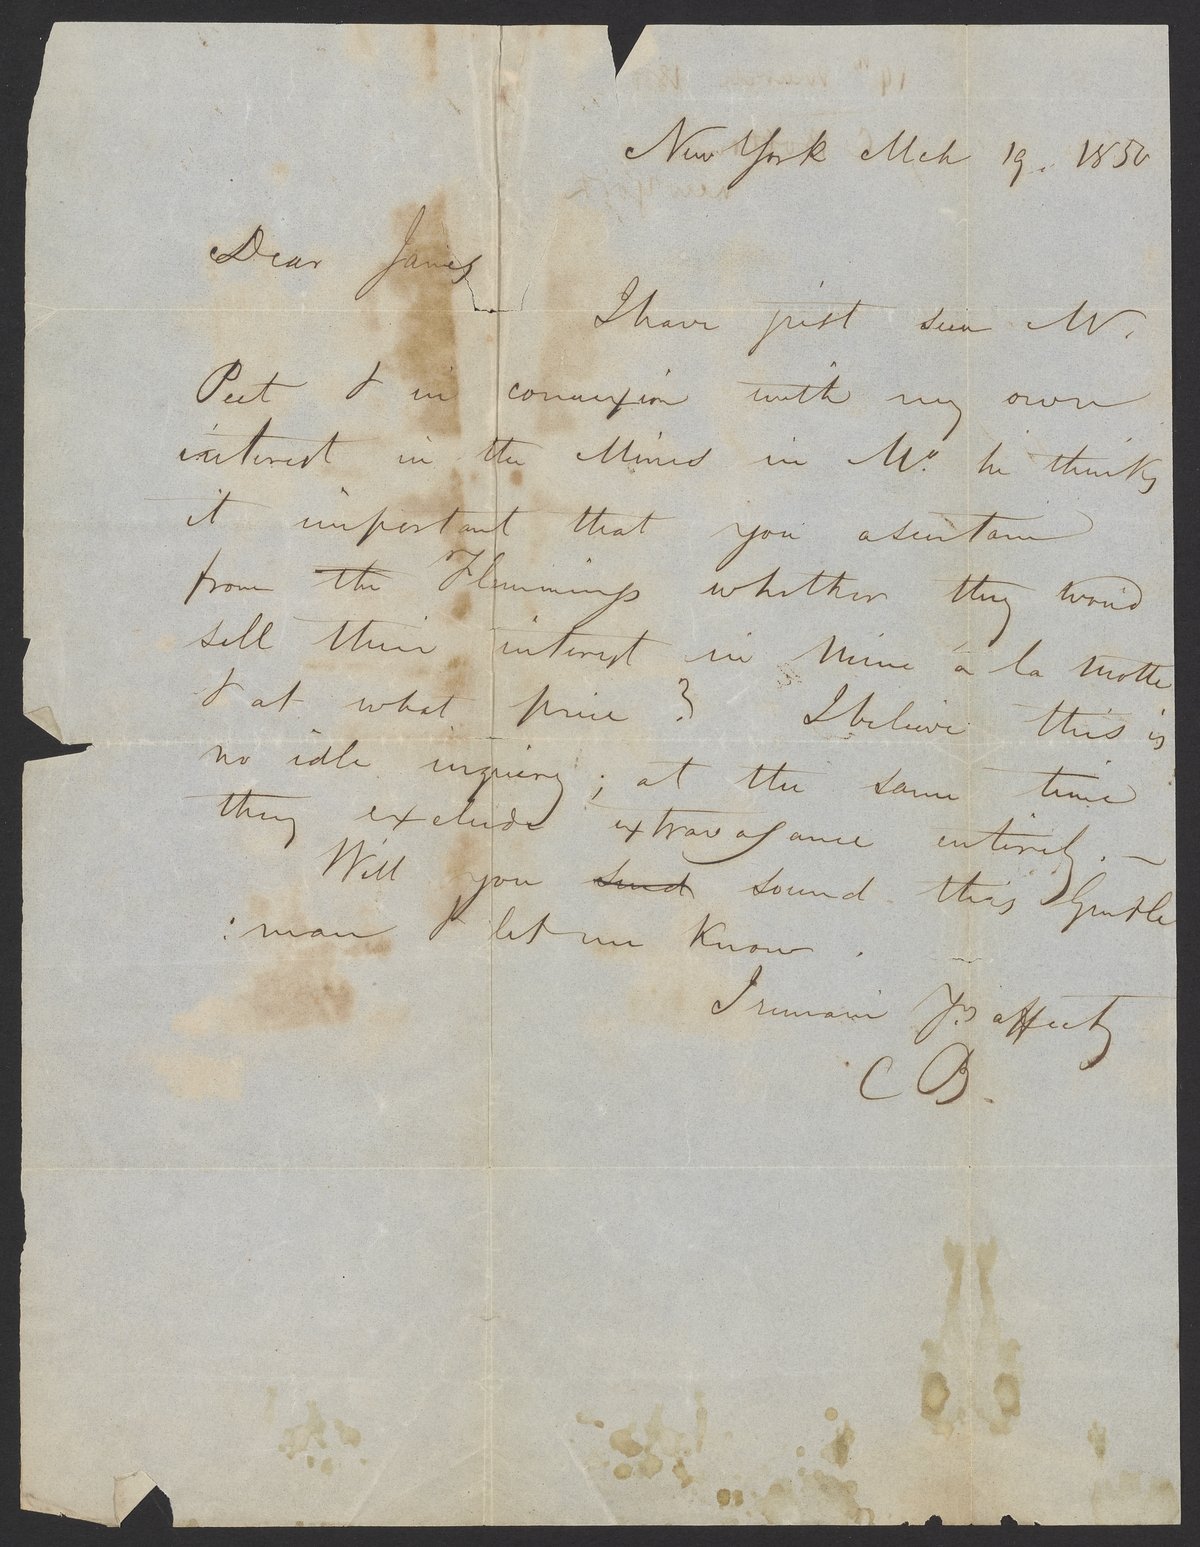 New York Mch 19. 1850
Dear James
I have just seen Mr.
Peet & in connexion with my own
interest in the Mines in Mo. he thinks
it important that you asertain
from the Flemmings whether they would
sell their interest in Mine a la Motte
& at what price? I believe this is
no idle inquiery; at the same time
they exclude extravagance entirely. —
Will you send sound this Gentle
:man & let me know.
I remain Yrs affecty
C B.